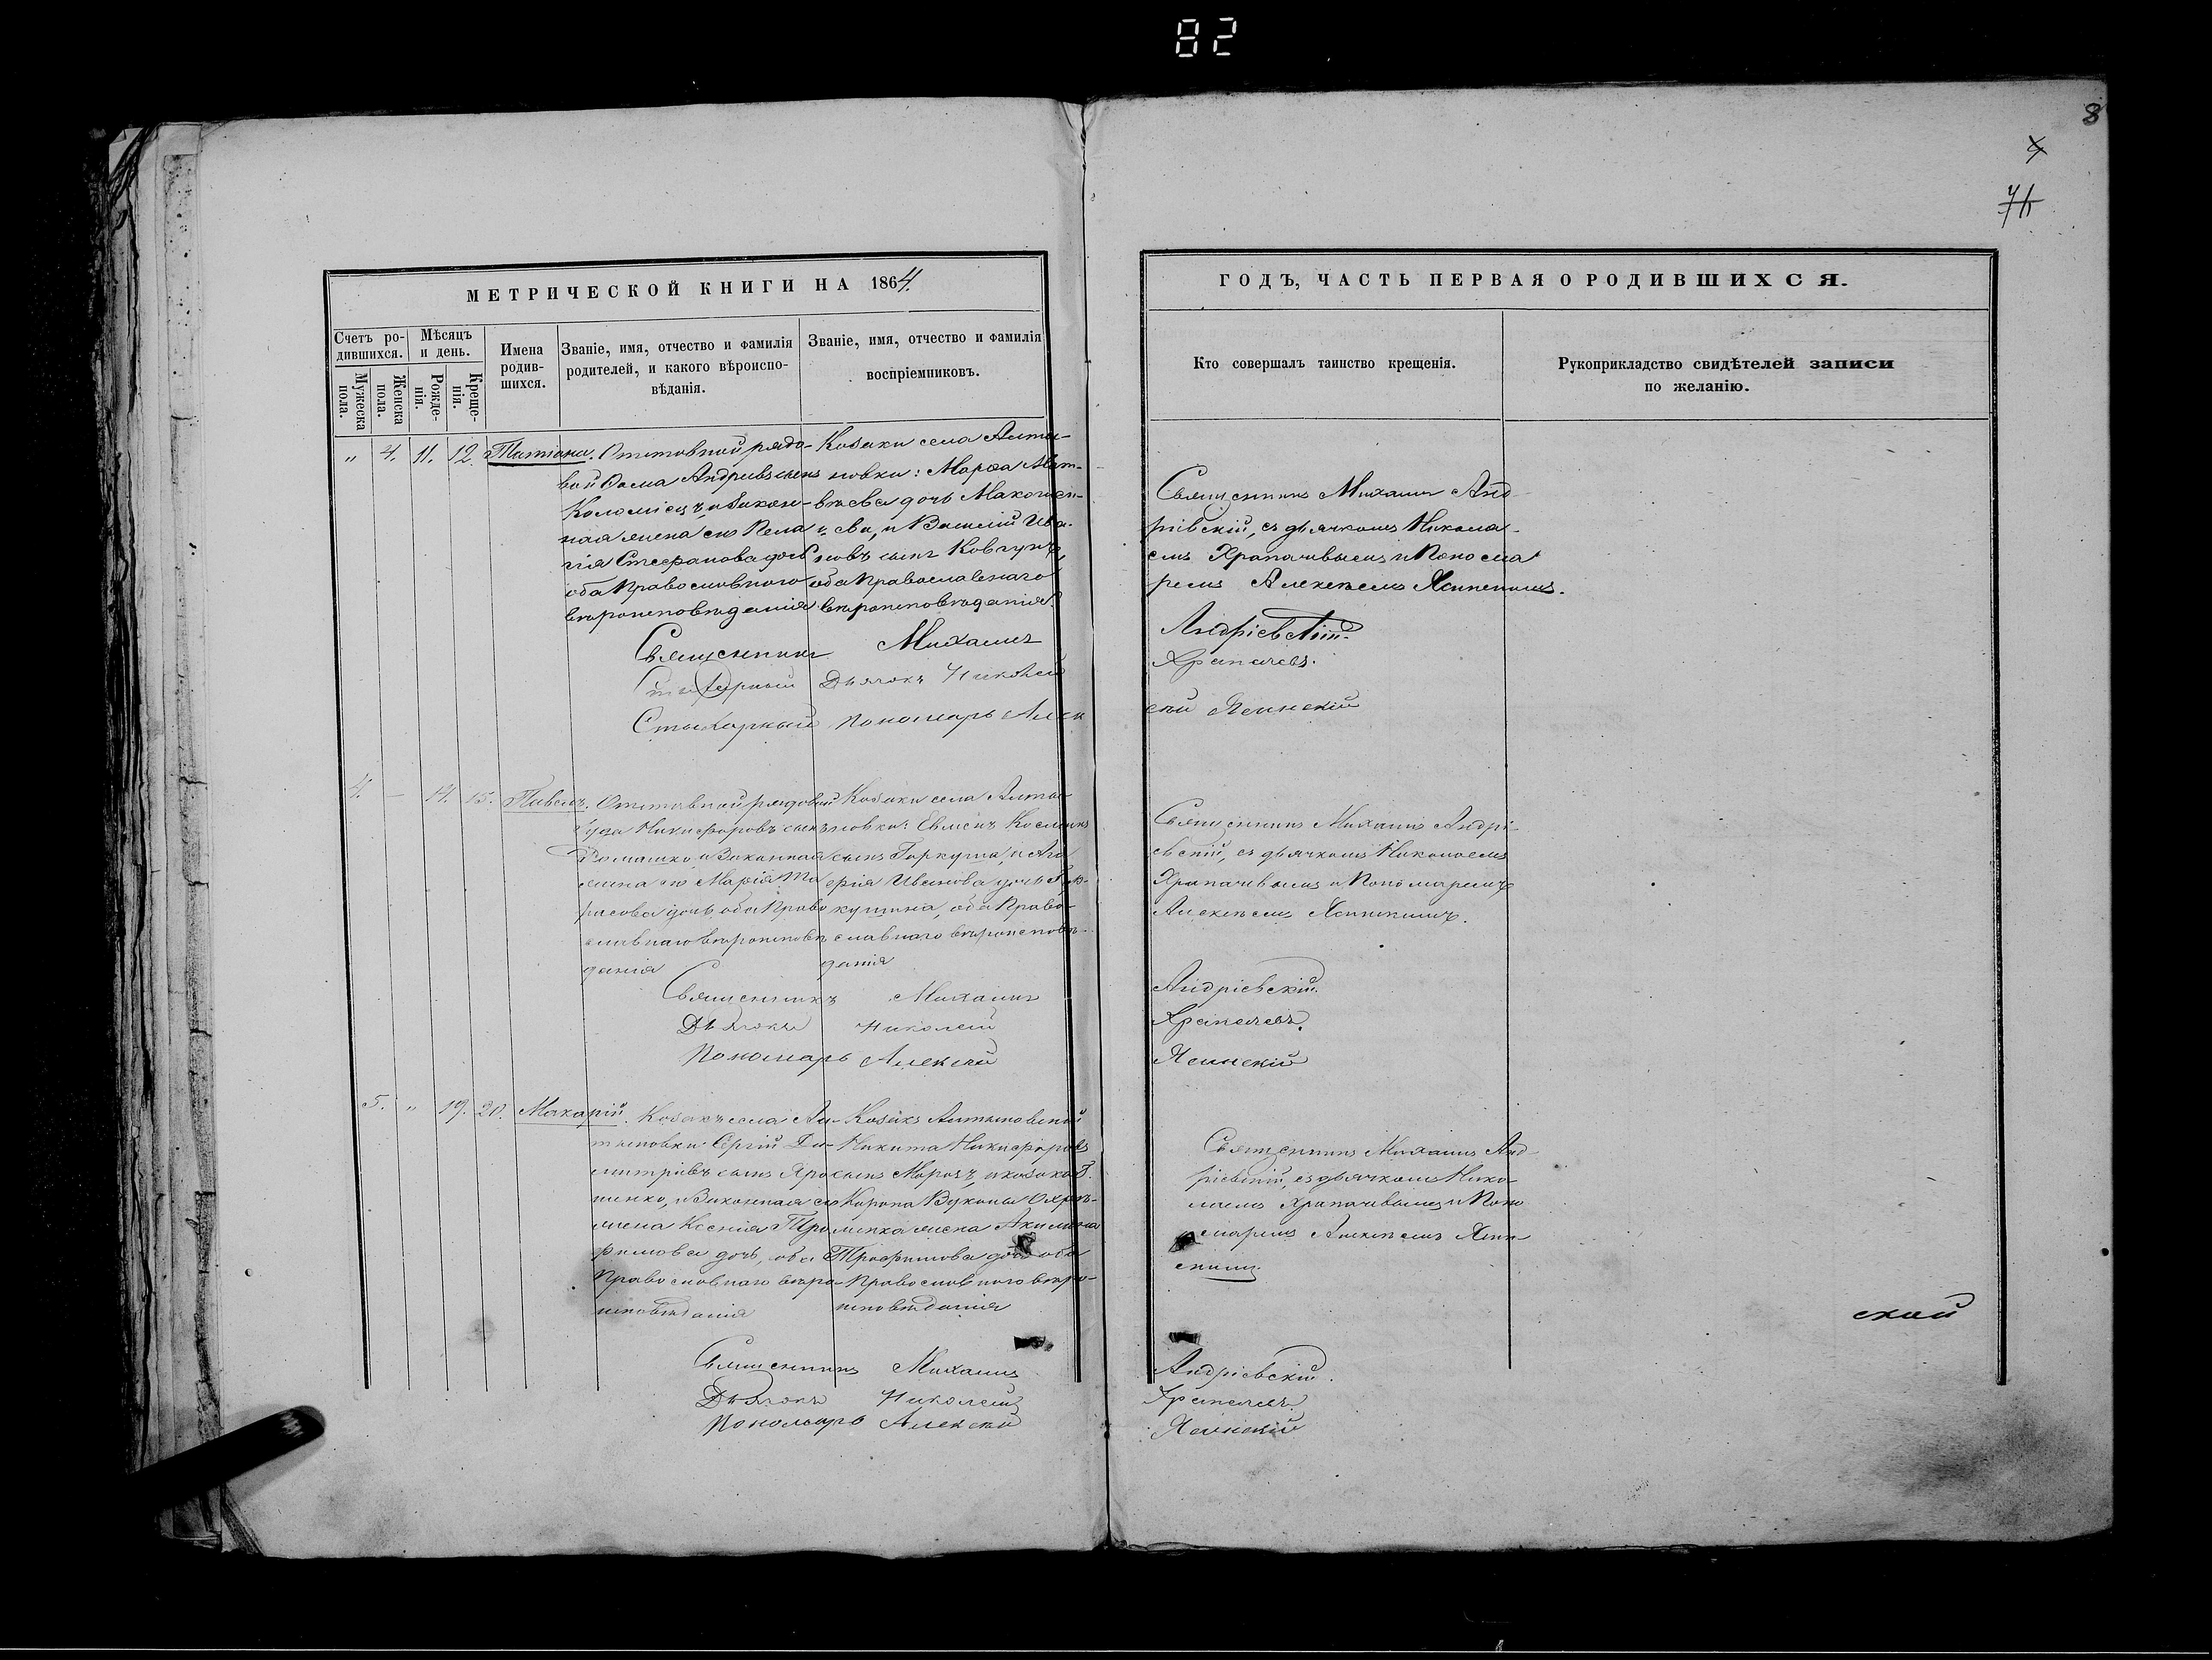 82
8
МЕТРИЧЕСКОЙ КНИГИ НА 1864.
ГОДЪ, ЧАСТЬ ПЕРВАЯ О РОДИВШИХСЯ.
Счетъ ро-
дившихся.
Мужеска
пола.
Женска
пола.
Мѣсяцъ
и день.
Рожде-
нія.
Креще-
нія.
Имена
родив-
шихся.
Званіе, имя, отчество и фамилія
родителей, и какого вѣроиспо-
вѣданія.
Званіе, имя, отчество и фамилія
воспріемниковъ.
Кто совершалъ таинство крещенія.
Рукоприкладство свидѣтелей записи
по желанію.
" 4. 11. 12. Татіана.
Отставной рядо-
вой Андріевъ сынъ
Коломіецъ, и закон-
ная жена его Пела
гія Стефанова дочь
оба Православного
вѣроисповѣданія
Козаки села Алты-
новки: Марѳа
дочь
и Василій Ива-
новъ сынъ Ковтунъ,
оба Православнаго
вѣроисповѣданія.
Священникъ Михаилъ Анд
ріевскій, съ дьячкомъ Никола-
емъ Храпачевымъ и Понома
ремъ Алексѣемъ Ясинскимъ.
Священникъ Михаилъ Андріевскій.
Стихарный Дьячокъ Николай Храпачевъ.
Стихарный Пономарь Алексѣй Ясинскій
4. — 14. 15. Павелъ.
Отставной рядовой
Никифоровъ сынъ
Ромашко и Законная
жена его Марія Та
расова дочь, оба Право
славнаго вѣроисповѣ
данія
Козаки села Алты-
новки: Косминъ
сынъ Гаркуша, и Ага
фія Иванова дочь
оба Право-
славнаго вѣроисповѣ-
данія
Священникъ Михаилъ Андрі-
евскій, съ дьячкомъ Николаемъ
Храпачевымъ и Пономаремъ
Алексѣемъ Ясинскимъ.
Священникъ Михаилъ Андріевскій.
Дьячокъ Николай Храпачевъ.
Пономарь Алексѣй Ясинскій
5. " 19. 20. Макарій.
Козакъ села Ал-
тыновки Сергій Ди-
митріевъ сынъ Яро
шенко, и Законная его
жена Ксенія Тро
фимова дочь, оба
Православнаго вѣро-
исповѣданія
Козакъ Алтыновскій
Никита Никифоровъ
сынъ Морозъ, и козака
жена Акилина
Трофимова дочь оба
Православного вѣро-
исповѣданія
Священникъ Михаилъ Анд-
ріевскій, съ дьячкомъ Нико-
лаемъ Храпачевымъ и Поно
маремъ Алексѣемъ Ясин-
скимъ.
ской
Священникъ Михаилъ Андріевскій.
Дьячокъ Николай Храпачевъ.
Пономарь Алексѣй Ясинскій